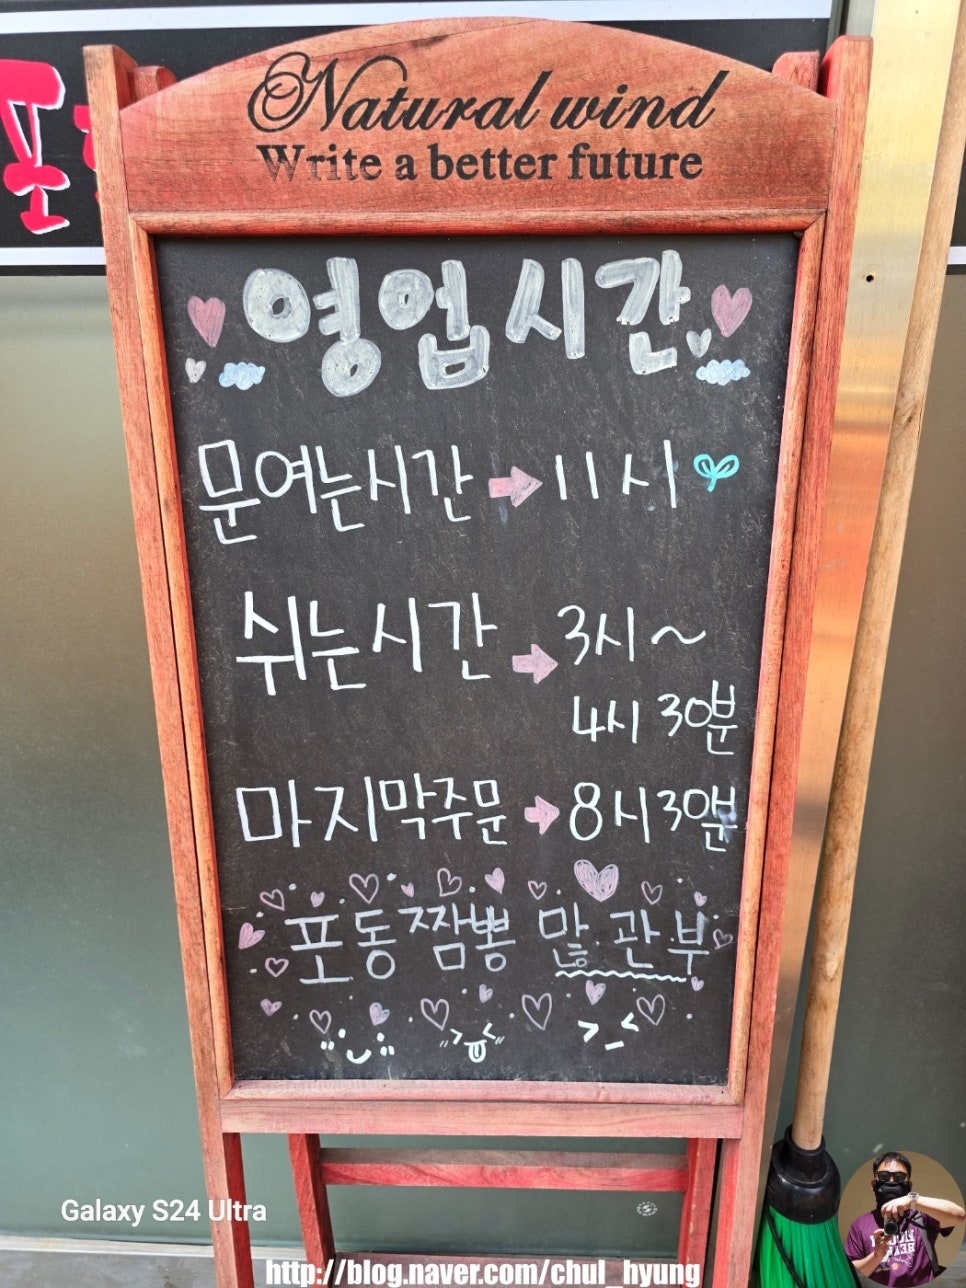 Natural wind
Write a better future
영업시간
문여는시간 → 11시
쉬는시간 → 3시 ~
4시 30분
마지막주문 → 8시30분
포동짬뽕 많.관.부
Galaxy S24 Ultra
http://blog.naver.com/chul_hyung